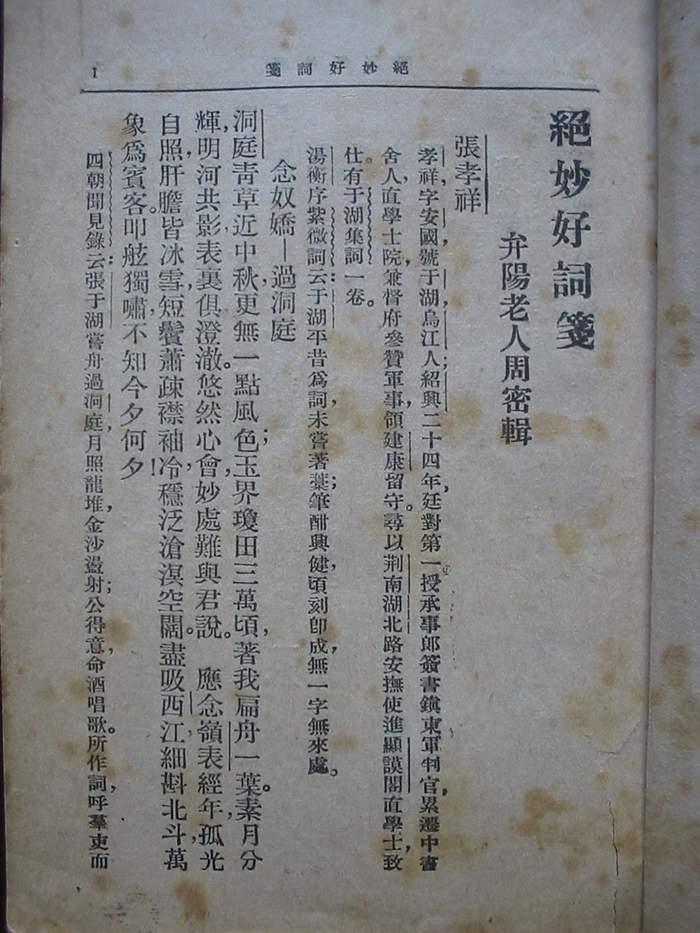 絕妙好詞箋
1
絕妙好詞箋
弁陽老人周密輯
張孝祥
孝祥,字安國,號于湖,烏江人;紹興二十四年,廷對第一,授承事郎,簽書鎮東軍判官,累遷中書
舍人,直學士院,兼督府參贊軍事,領建康留守。尋以荆南湖北路安撫使進顯謨閣直學士,致
仕。有于湖集詞一卷。
湯衡序紫微詞云:于湖平昔爲詞,未嘗著藁;筆酣興健,頃刻卽成,無一字無來處。
念奴嬌—過洞庭
洞庭青草,近中秋,更無一點風色;玉界瓊田三萬頃,著我扁舟一葉。素月分
輝,明河共影,表裏俱澄澈。悠然心會,妙處難與君說。 應念嶺表經年,孤光
自照,肝膽皆冰雪;短鬢蕭疎襟袖冷,穩泛滄溟空闊。盡吸西江,細斟北斗,萬
象爲賓客。叩舷獨嘯,不知今夕何夕!
四朝聞見錄云:張于湖嘗舟過洞庭,月照龍堆,金沙盪射;公得意,命酒唱歌。所作詞,呼羣吏而